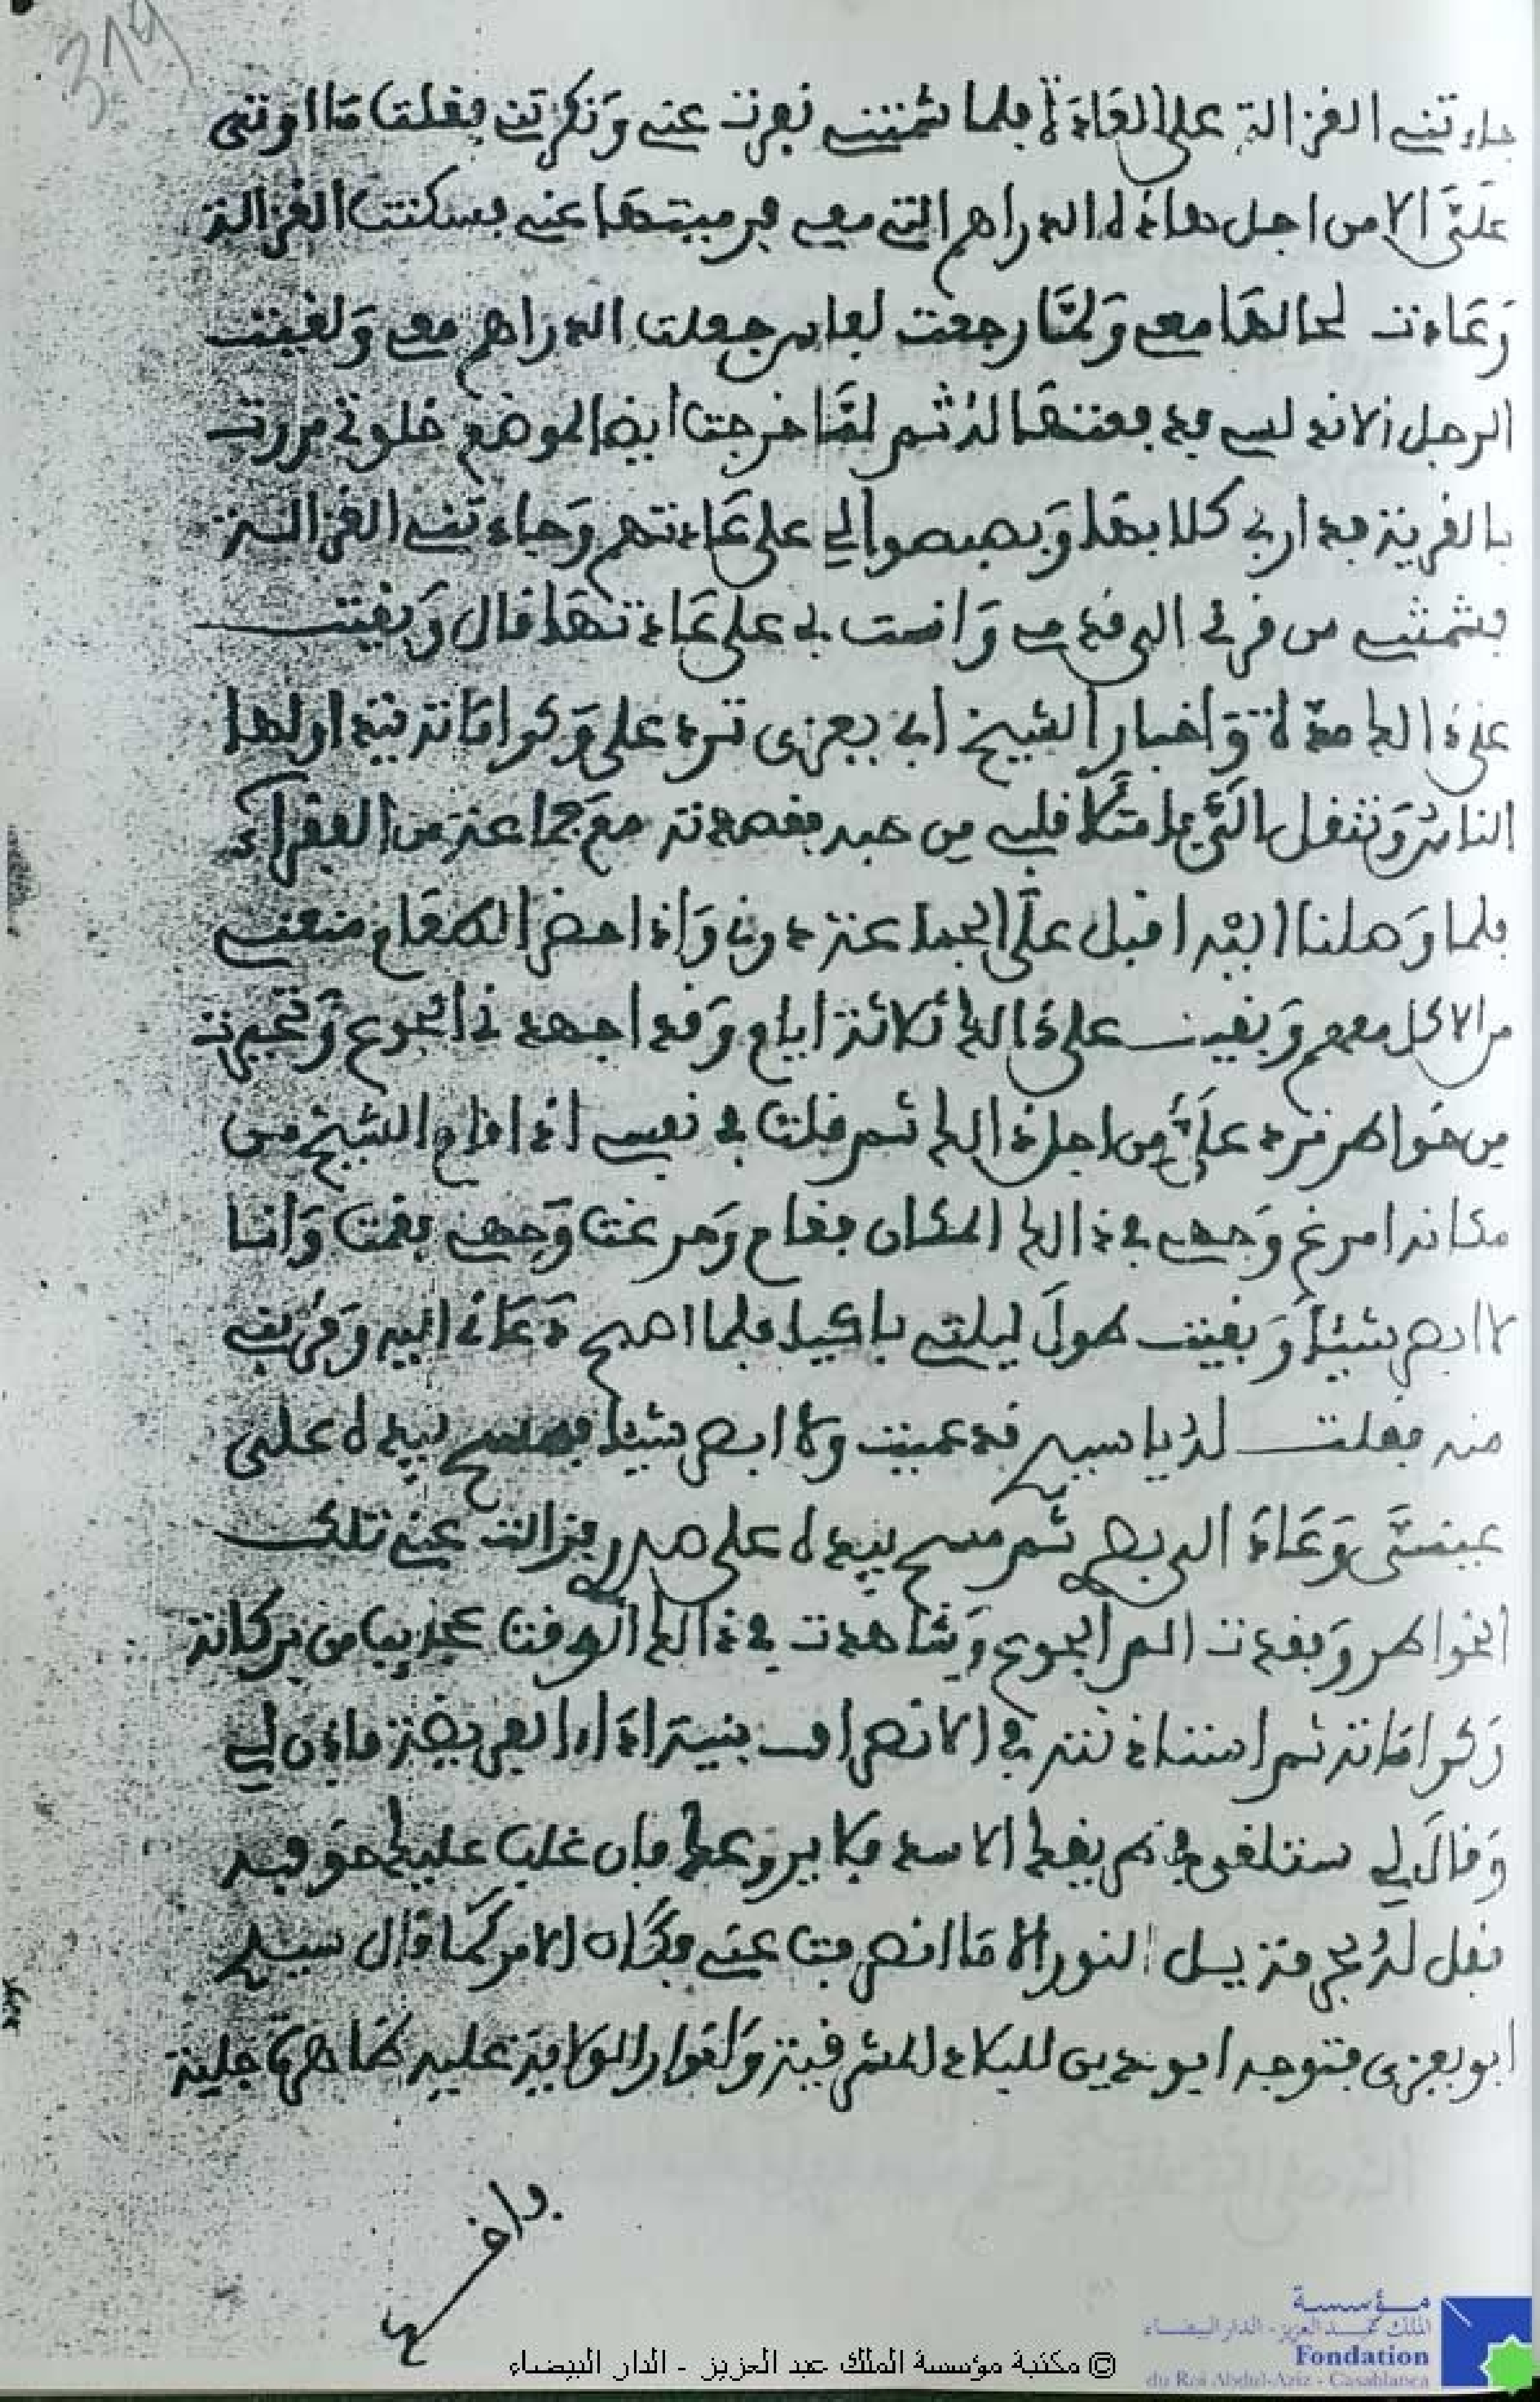 319
جاءتني الغزالة على العادة فلما شمتني نفرت عني ونكرتني فقلت ما اوتي
علي الا من اجل هاذه الدراهم التي معي فرميتها عني فسكنت الغزالة
وعادت لحالها معي ولما رجعت لفاس جعلت الدراهم معي ولقيت
الرجل الاندلسي فدفعتها له ثم لما خرجت ايضا لموضع خلوتي مررت
بالقرية فدار بي كلابها وبصبصوا لي على عادتهم وجاءتني الغزالة
فشمتني من فرقي الى قدمي وانست بي على عادتها قال وبقيت
على ذالك مدة واخبار الشيخ ابي يعزى ترد علي وكراماته يتداولها
الناس وتنقل الي فامتلا قلبي من حبه فقصدته مع جماعة من الفقراء
فلما وصلنا اليه اقبل على الجماعة دوني واذا حضر الطعام منعني
من الاكل معهم وبقيت على ذالك ثلاثة ايام وقد اجهدني الجوع وتحيرت
من خواطر ترد علي من اجل ذالك ثم قلت في نفسي اذا قام الشيخ من
مكانه امرغ وجهي في ذالك المكان فقام ومرغت وجهي فقمت وانا
لا ابصر شيئا وبقيت طول ليلتي باكيا فلما اصبح دعاني اليه وقربني
منه فقلت له يا سيدي قد عميت ولا ابصر شيئا فمسح بيده على
عيني وعاد الي بصري ثم مسح بيده على صدري فزالت عني تلك
الخواطر وفقدت الم الجوع وشاهدت في ذالك الوقت عجايبا من بركاته
وكراماته ثم استاذنته في الانصراف بنية اداء الفريضة فاذن لي
وقال لي ستلقى في طريقك الاسد فلا يروعك فان غلب عليك خوفه
فقل له بحرمة يلنور الا ما انصرفت عني فكان الامر كما قال سيدي
ابو يعزى فتوجه ابو مدين للبلاد المشرقية وانوار الولاية عليه ظاهرة جلية
وا
© مكتبة مؤسسة الملك عبد العزيز - الدار البيضاء
مؤسسة
الملك عبد العزيز - الدار البيضاء
Fondation
du Roi Abdul-Aziz - Casablanca